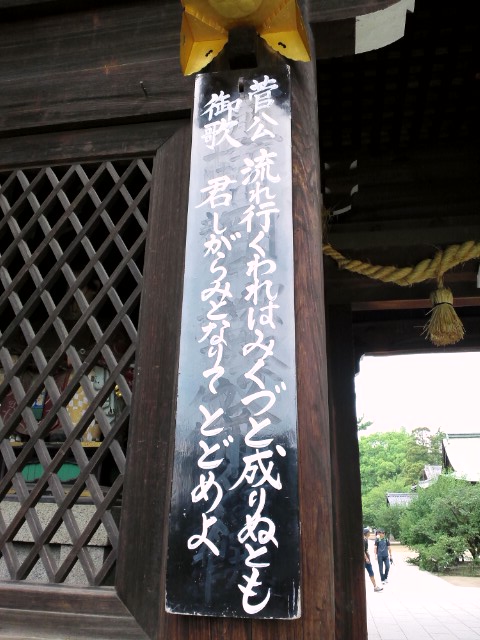 菅公 流れ行くわれはみくづと成りぬとも
御歌 君しがらみとなりてとどめよ